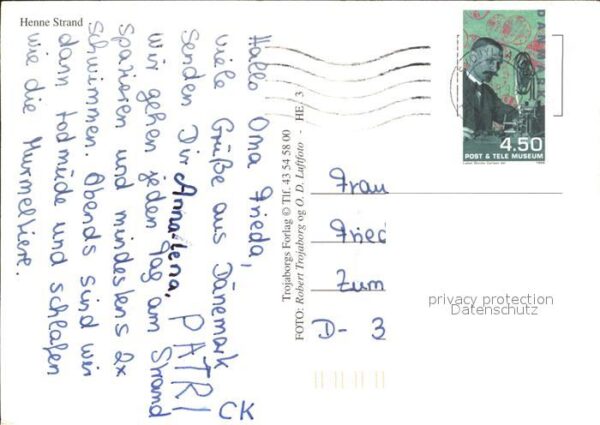 Henne Strand
Hallo Oma Frieda,
viele Grüße aus Dänemark
senden Dir Anna-Lena, PATRI
CK
wir gehen jeden Tag am Strand
spazieren und mindestens 2x
schwimmen. Abends sind wir
dann todmüde und schlafen
wie die Murmeltiere.
Trojaborgs Forlag © Tlf. 43 54 58 00
FOTO: Robert Trojaborg og O. D. Luftfoto - HE. 3
DANMARK
4.50
POST & TELE MUSEUM
1998
Frau
Fried
Zum
D- 3
privacy protection
Datenschutz